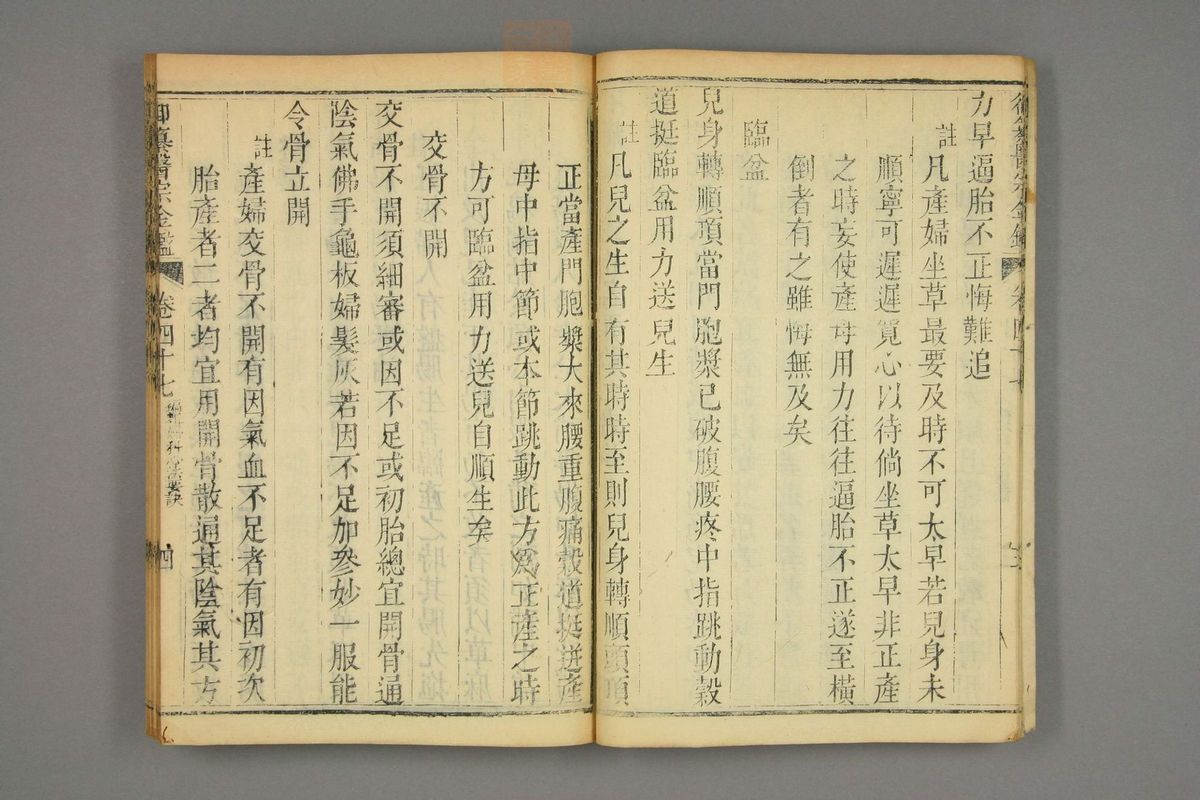 力早逼胎不正悔難追
註凡產婦坐草最要及時不可太早若兒身未
順寧可遲遲寬心以待倘坐草太早非正產
之時妄使產母用力往往逼胎不正遂至橫
倒者有之雖悔無及矣
臨盆
兒身轉順頂當門胞漿已破腹腰疼中指跳動穀
道挺臨盆用力送兒生
註凡兒之生自有其時時至則兒身轉順頭頂
正當產門胞漿大來腰重腹痛穀道挺迸產
母中指中節或本節跳動此方為正產之時
方可臨盆用力送兒自順生矣
交骨不開
交骨不開須細審或因不足或初胎總宜開骨通
陰氣佛手龜板婦髮灰若因不足加參妙一服能
令骨立開
註產婦交骨不開有因氣血不足者有因初次
胎產者二者均宜用開骨散通其陰氣其方
御纂醫宗金鑑 卷四十七 編輯婦科心法要訣 四